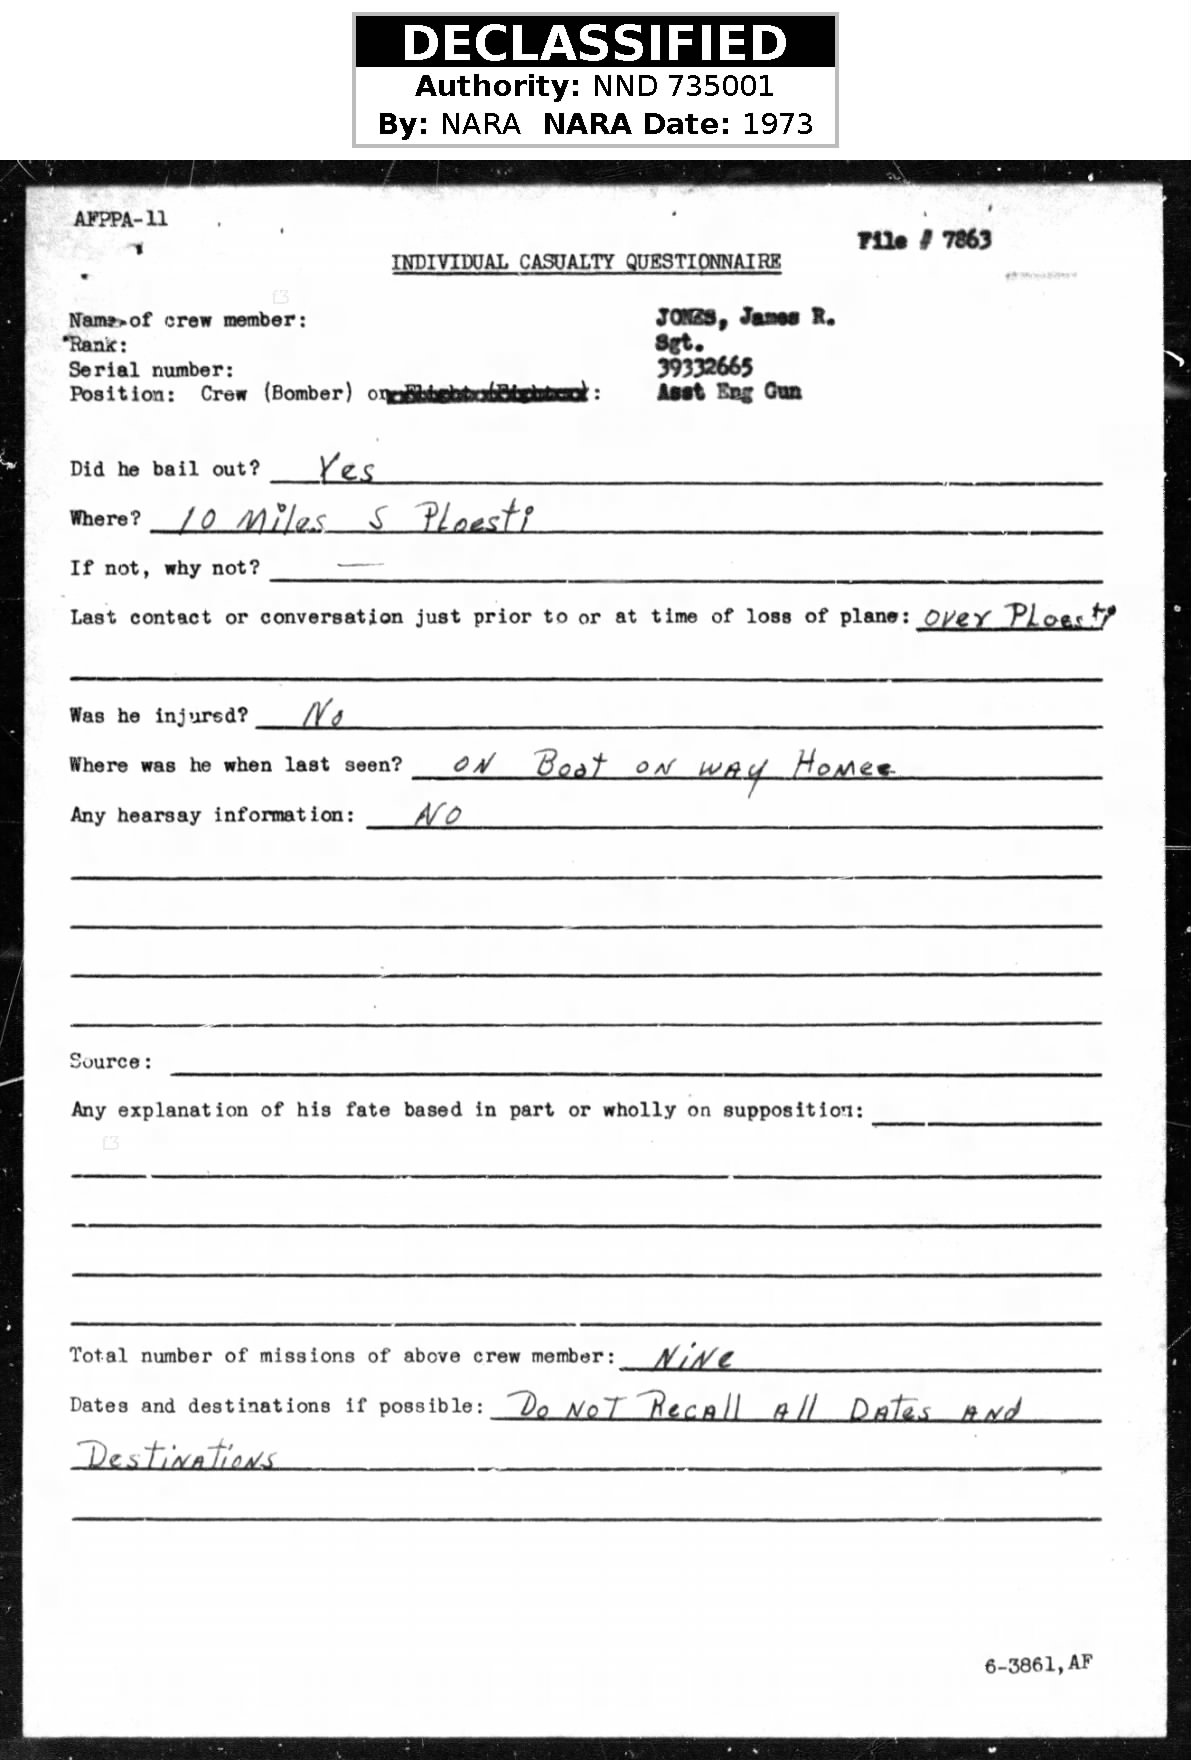 DECLASSIFIED
Authority: NND 735001
By: NARA NARA Date: 1973
AFPPA-11
File # 7863
INDIVIDUAL CASUALTY QUESTIONNAIRE
Name of crew member: JONES, James R.
Rank: Sgt.
Serial number: 39332665
Position: Crew (Bomber) or : Asst Eng Gun
Did he bail out? Yes
Where? 10 Miles S Ploesti
If not, why not? —
Last contact or conversation just prior to or at time of loss of plane: over Ploesti
Was he injured? No
Where was he when last seen? ON Boat ON WAY Home
Any hearsay information: NO
Source:
Any explanation of his fate based in part or wholly on supposition:
Total number of missions of above crew member: NiNe
Dates and destinations if possible: Do NOT Recall All Dates AND
Destinations
6-3861,AF